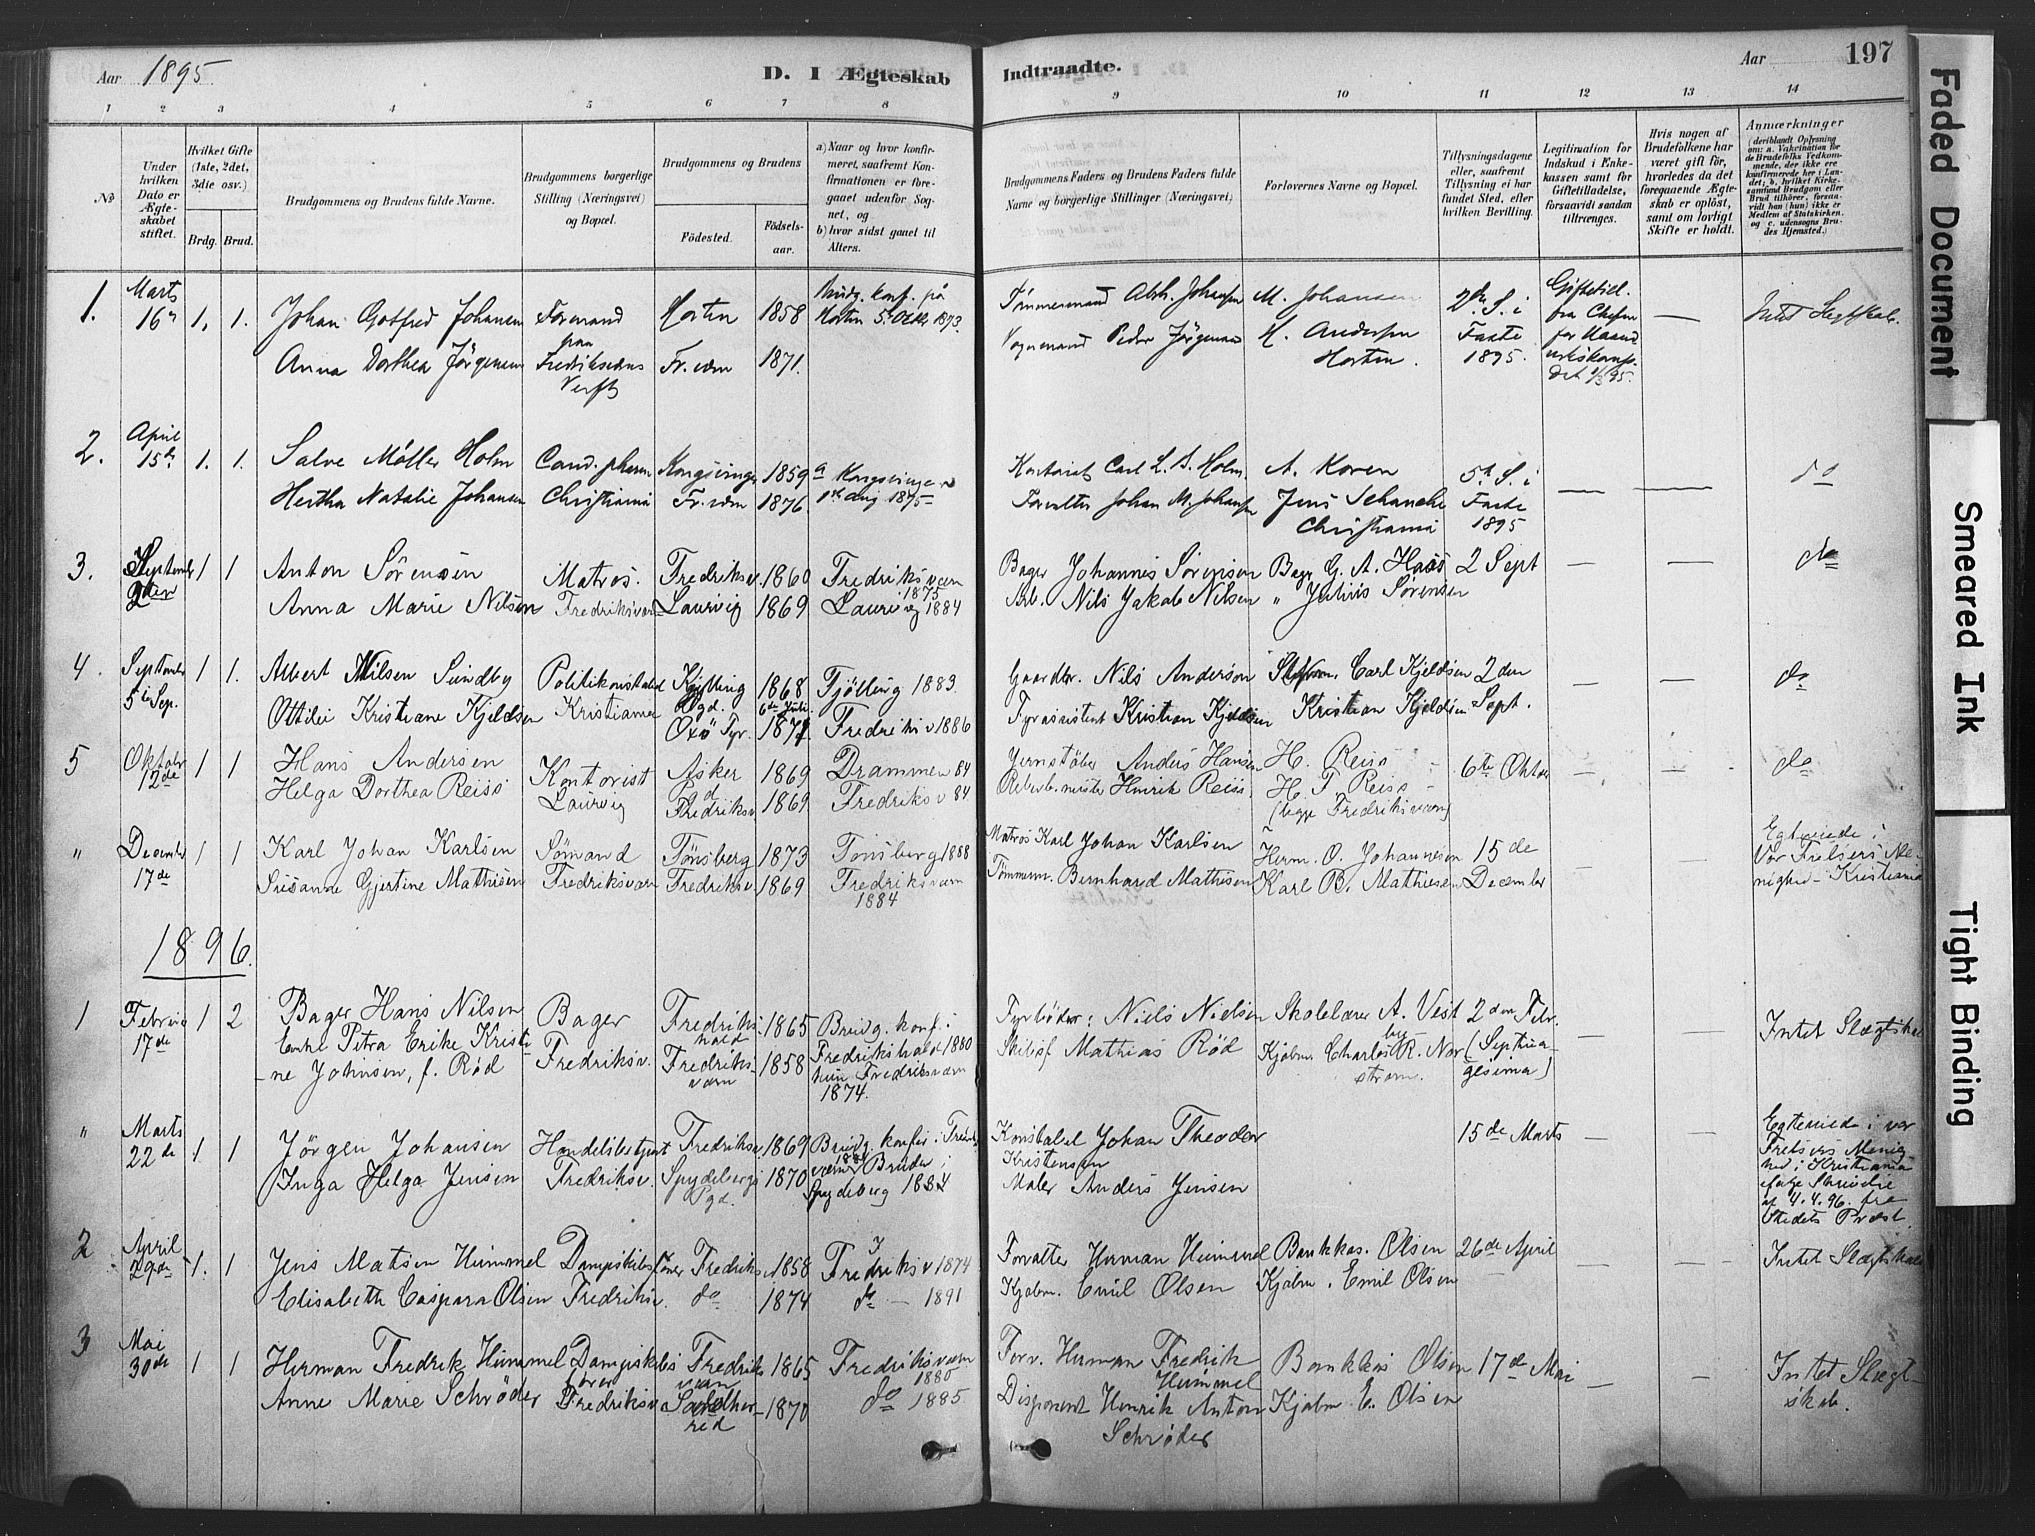 Aar 1895 D. I Ægteskab Indtraadte. Aar 197
1 2 3 4 5 6 7 8 9 10 11 12 13 14
No
Under hvilken Dato er Ægteskabet stiftet.
Hvilket Gifte (1ste, 2det, 3die osv.)
Brdg. Brud.
Brudgommens og Brudens fulde Navne.
Brudgommens borgerlige Stilling (Næringsvei) og Bopæl.
Brudgommens og Brudens
Fødested. Fødselsaar.
a) Naar og hvor konfirmeret, saafremt Konfirmationen er foregaaet udenfor Sognet, og
b) hvor sidst gaaet til Alters.
Brudgommens Faders og Brudens Faders fulde Navne og borgerlige Stillinger (Næringsvei)
Forlovernes Navne og Bopæl.
Tillysningsdagene eller, saafremt Tillysning ei har fundet Sted, efter hvilken Bevilling.
Legitimation for Indskud i Enkekassen samt for Giftetilladelse, forsaavidt saadan tiltrænges.
Hvis nogen af Brudefolkene har været gift før, hvorledes da det foregaaende Ægteskab er opløst, samt om lovligt Skifte er holdt.
Anmærkninger
(deriblandt Oplysning om: a. Vakcination for de Brudefolks Vedkommende, der ikke ere konfirmerede her i Landet; b. hvilket Kirkesamfund Brudgom eller Brud tilhører, forsaavidt han (hun) ikke er Medlem af Statskirken. og c. udensogns Brudes Hjemsted.)
1. Marts 16de 1. 1. Johan Gotfred Johansen Formand Horten 1858 Brudg. konf. på Horten 5. Oktbr 1873. Tømmermand Abh. Johansen M. Johansen 2den S. i Faste 1895. Giftetil. fra Chefen
Anna Dorthea Jörgensen paa Fredriksværns Verft Fr.værn 1871. Vognmand Peder Jörgensen H. Andersen Horten.
2. April 15de 1. 1. Salve Møller Holm Cand. pharm Kongsvinger 1859 a Kongsvinger 1875 Carl L. B. Holm A. Koren 5te S. i Faste 1895 — — do
Hertha Natalie Johansen Christiania Fr.værn 1876 Forvalter Johan M. Johansen Jens Schanche Christiania
3. September 2den 1 1 Anton Sörensen Matros. Fredriksv. 1860 Fredriksværn 1875 Bager Johannes Sörensen Bager G. A. Haas 2 Sept — — do
Anna Marie Nilsen Fredriksværn Laurvig 1869 Laurvig 1884 Arb. Nils Jakob Nilsen " Julius Sörensen
4. September 5te Sep. 1 1. Albert Nilsen Sundby Politikonstabel Kjølling Pgd. 1868 Tjølling 1883. Gaardbr. Nils Anderson Carl Kjeldsen 2den Sept. — — do
Ottilie Kristiane Kjeldsen Kristiania Oxö Fyr. 1871 Fredriksv 1886 Fyrassistent Kristian Kjeldsen Kristian Kjeldsen
5 Oktober 12de 1 1 Hans Andersen Kontorist Asker 1869 Drammen 84 Jernstøber Anders Hansen H. Reiss 6te Oktober — — do
Helga Dorthea Reiss Laurvig Fredriksv 1869 Fredriksv 84 Reberb.mester Hinrik Reiss. H. T. Reiss (begge Fredriksværn)
" December 17de 1 1 Karl Johan Karlsen Sømand Tönsberg 1873 Tönsberg 1888 Matros Karl Johan Karlsen Herm. O. Johannesen 15de December — — Egtviede i Vor Frelsers Menighed - Kristiania
Susanne Gjertine Mathisen Fredriksværn Fredriksv 1869 Fredriksværn 1884 Tömmerm. Bernhard Mathisen Karl B. Mathiesen
1896.
1 Februar 17de 1 2 Bager Hans Nilsen Bager Fredrikshald 1865 Brudg. konf. i Fredrikshald 1880 Fyrbøder: Niels Nielsen Skolelærer A. Vest 2den Febr. (Septuagesima) — — Intet Slægtskab
Enke Petra Erike Kristine Johnsen, f. Röd Fredriksv. Fredriksværn 1858 hun Fredriksværn 1874. Mathias Röd Kjøbm. Charles R. Nordstrøm.
" Marts 22de 1 1 Jörgen Johansen Handelsbetjent Fredriksv 1869 Brudg. konfir. i Fredriksværn Konstabel Johan Theodor Kristensen 15de Marts — — Egteviede i vor Frelsers Menighed i Kristiania ifølge Skrivelse af 4.4.96. fra Stedets Præst.
Inga Helga Jensen Fredriksv. Spydeberg Pgd. 1870 Bruden i Spydeberg 1884 Maler Anders Jensen
2 April 29de 1. 1 Jens Matsen Hummel Dampskibsfører Fredriksv 1858 Fredriksv 1874 Forvalter Herman Hummel Bankkas. Olsen 26de April — — Intet Slægtskab
Elisabeth Caspara Olsen Fredriksv. do 1874 do — 1891 Kjøbm. Emil Olsen Kjøbm. Emil Olsen
3 Mai 30de 1 1 Herman Fredrik Hummel Dampskibsfører Fredriksværn 1865 Fredriksværn 1880 Forv. Herman Fredrik Hummel Bankkas Olsen 17de Mai — — Intet Slægtskab.
Anne Marie Schrøder Fredriksv Sandherred 1870 do 1885 Disponent Hinrik Anton Schrøder Kjøbm E. Olsen
Faded Document
Smeared Ink
Tight Binding